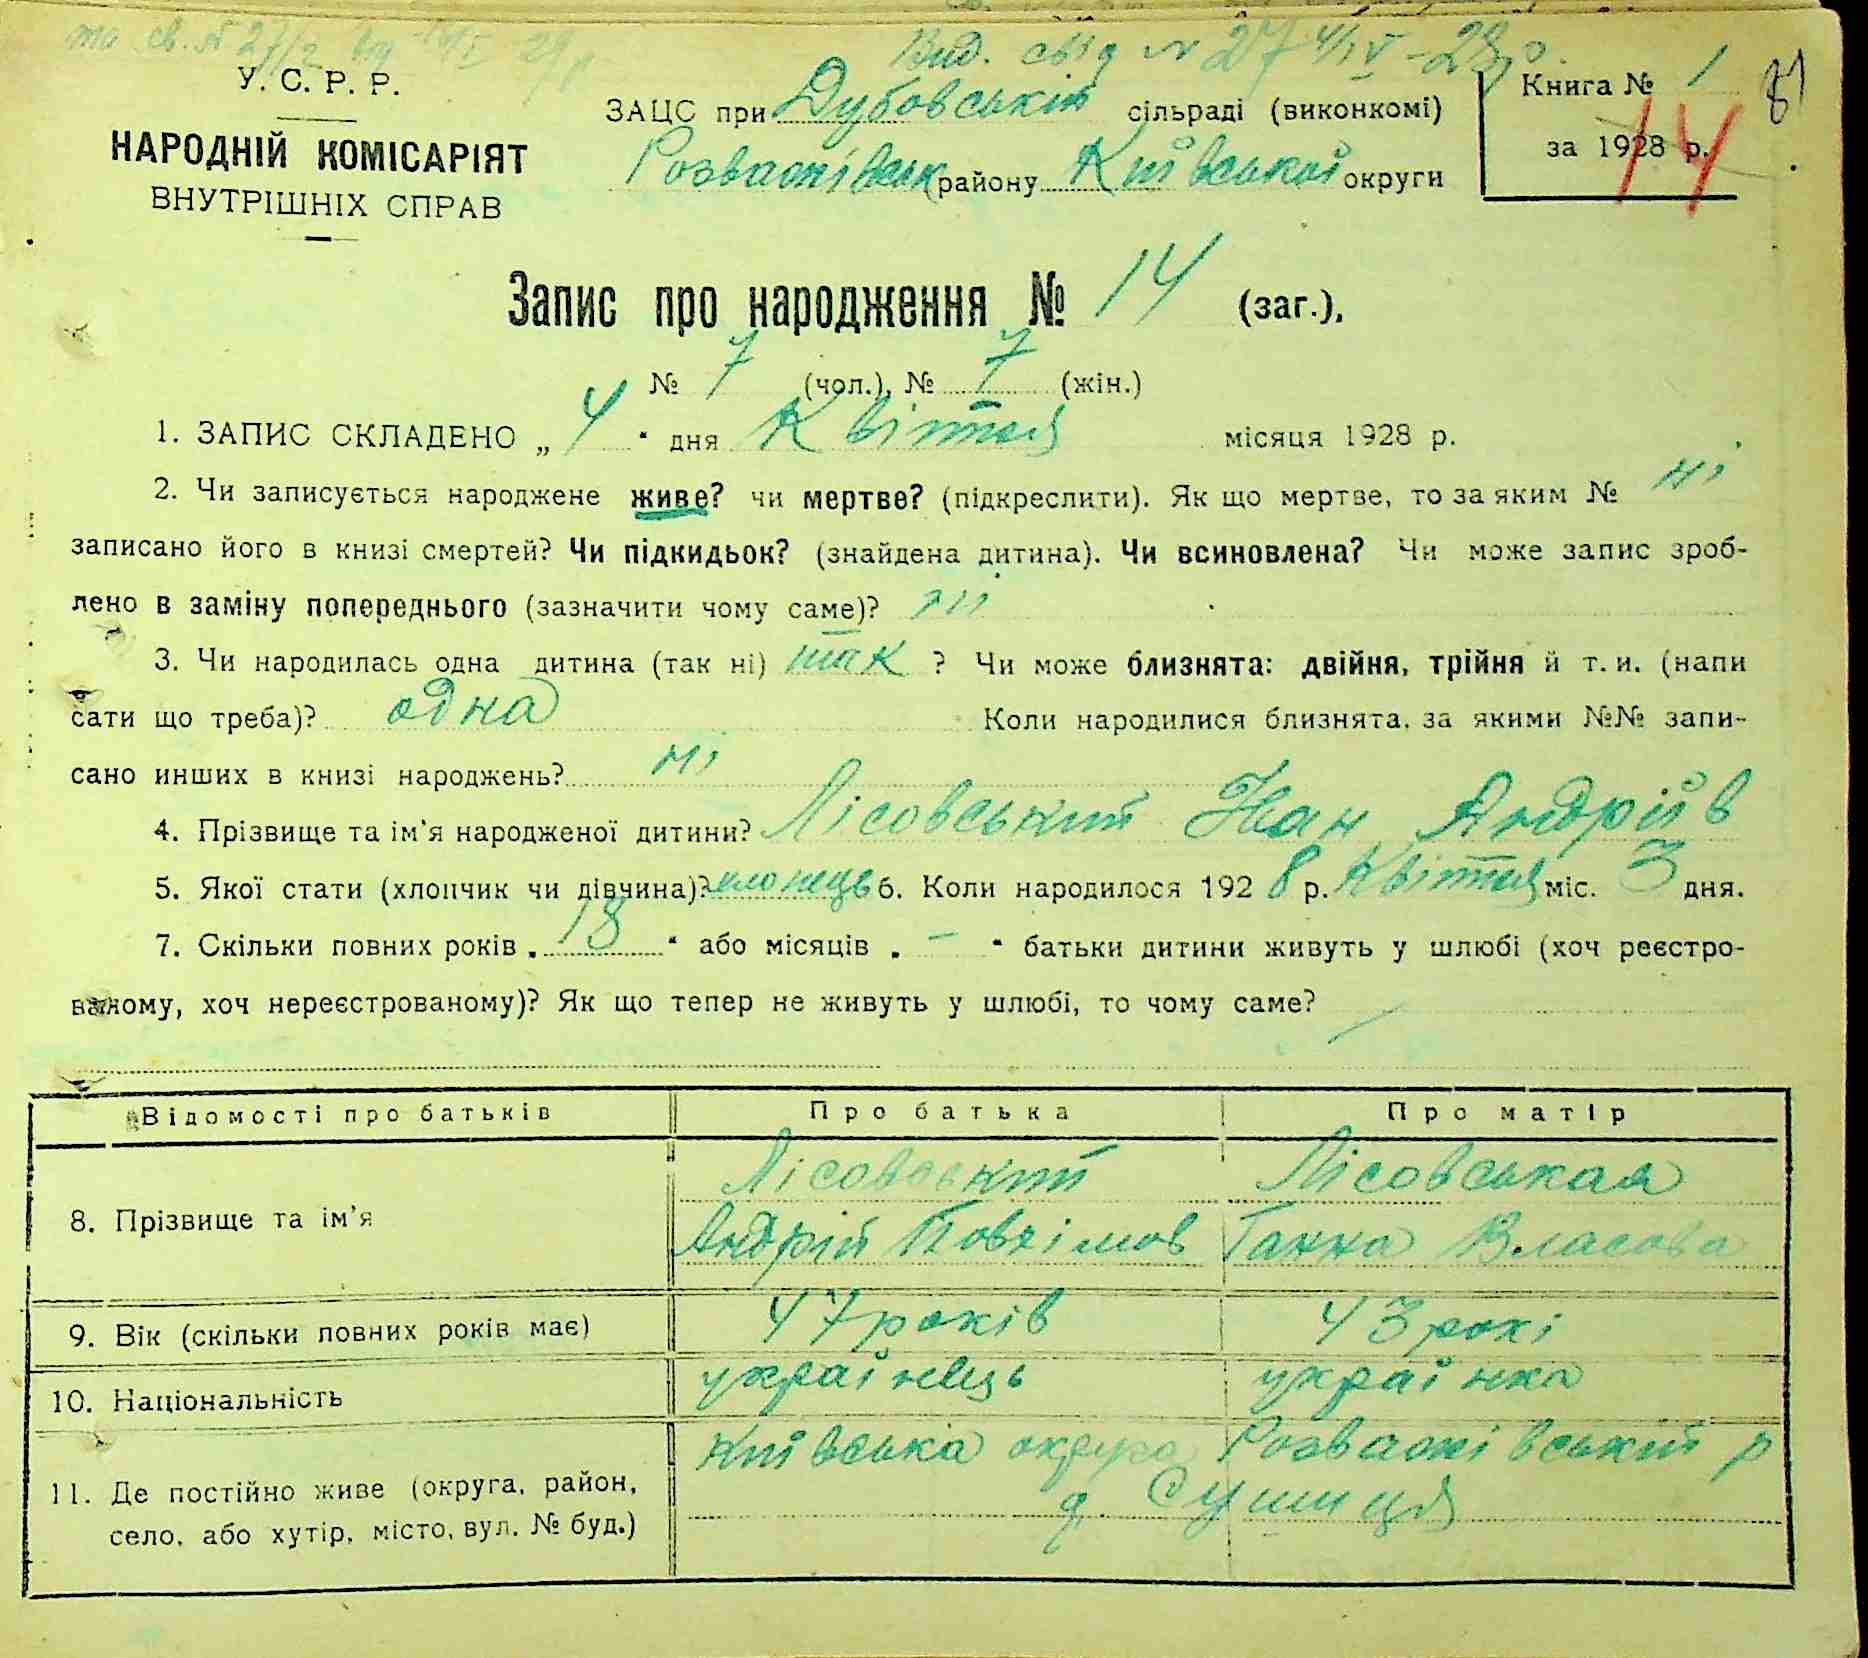 Вид. свід № 27 4/IV-28 р.
У. С. Р. Р.
НАРОДНІЙ КОМІСАРІЯТ
ВНУТРІШНІХ СПРАВ
ЗАЦС при Дубовській сільраді (виконкомі)
Розважівськ району Київської округи
Книга № 1
за 1928 р.
14
Запис про народження № 14 (заг.),
№ 7 (чол.), № 7 (жін.)
1. ЗАПИС СКЛАДЕНО „ 4 " дня Квітня місяця 1928 р.
2. Чи записується народжене живе? чи мертве? (підкреслити). Як що мертве, то за яким № ні
записано його в книзі смертей? Чи підкидьок? (знайдена дитина). Чи всиновлена? Чи може запис зроб-
лено в заміну попереднього (зазначити чому саме)? ні
3. Чи народилась одна дитина (так ні) так ? Чи може близнята: двійня, трійня й т. и. (напи
сати що треба)? одна Коли народилися близнята, за якими №№ запи-
сано инших в книзі народжень? ні
4. Прізвище та ім'я народженої дитини? Лісовський Йван Андріїв
5. Якої стати (хлопчик чи дівчина)? хлопець 6. Коли народилося 1928 р. Квітня міс. 3 дня.
7. Скільки повних років „ 18 " або місяців „ – " батьки дитини живуть у шлюбі (хоч реєстро-
ваному, хоч нереєстрованому)? Як що тепер не живуть у шлюбі, то чому саме?
Відомості про батьків Про батька Про матір
8. Прізвище та ім'я
Лісовський Лісовськая
Андрій Ганна Власова
9. Вік (скільки повних років має) 47 років 43 рокі
10. Національність українець українка
11. Де постійно живе (округа, район,
село, або хутір, місто, вул. № буд.)
Київська округа Розважівський р
Сушиця